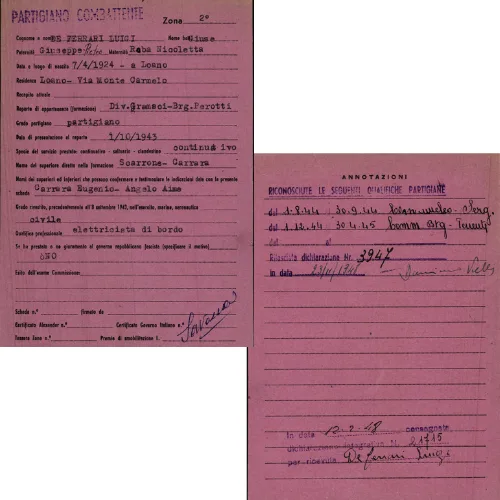 PARTIGIANO COMBATTENTE
Zona 2°
Cognome e nome DE FERRARI LUIGI Nome batt. Fiume
Paternità Giuseppe Maternità Roba Nicoletta
Data e luogo di nascita 7/4/1924 - a Loano
Residenza Loano- Via Monte Carmelo
Recapito attuale
Reparto di appartenenza (formazione) Div.Gramsci-Brg.Perotti
Grado partigiano partigiano
Data di presentazione al reparto 1/10/1943
Specie del servizio prestato: continuativo - saltuario - clandestino continuativo
Nome del superiore diretto nella formazione Scarrone- Carrara
Nomi dei superiori ed inferiori che possono confermare o testimoniare le indicazioni date con la presente
scheda Carrara Eugenio- Angelo Aimo
Grado rivestito, precedentemente all'8 settembre 1943, nell'esercito, marina, aeronautica
civile
Qualifica professionale elettricista di bordo
Se ha prestato o no giuramento al governo repubblicano fascista (specificare il motivo)
NO
Esito dell'esame Commissione:
Scheda n.° firmata da
Certificato Alexander n.° Certificato Governo Italiano n.°
Tessera Zona n.° Premio di smobilitazione L.
ANNOTAZIONI
RICONOSCIUTE LE SEGUENTI QUALIFICHE PARTIGIANE
dal 1.8.44 30.9.44 Serg.
dal 1.12.44 30.4.45 Comm Brg
al
Rilasciata dichiarazione Nr. 3947
in data
In data 12-2-48 consegnata
dichiarazione integrativa N. 21715
per ricevuta De Ferrari Luigi